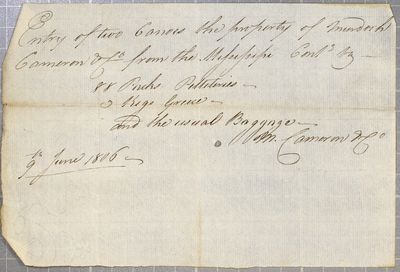 Entry of two Canoes the property of Murdoch
Cameron & Co. from the Missisipi Cont.g Viz —
88 Packs Peltries —
Kegs Grease —
and the usual Baggage —
M. Cameron & Co
9th June 1806 —